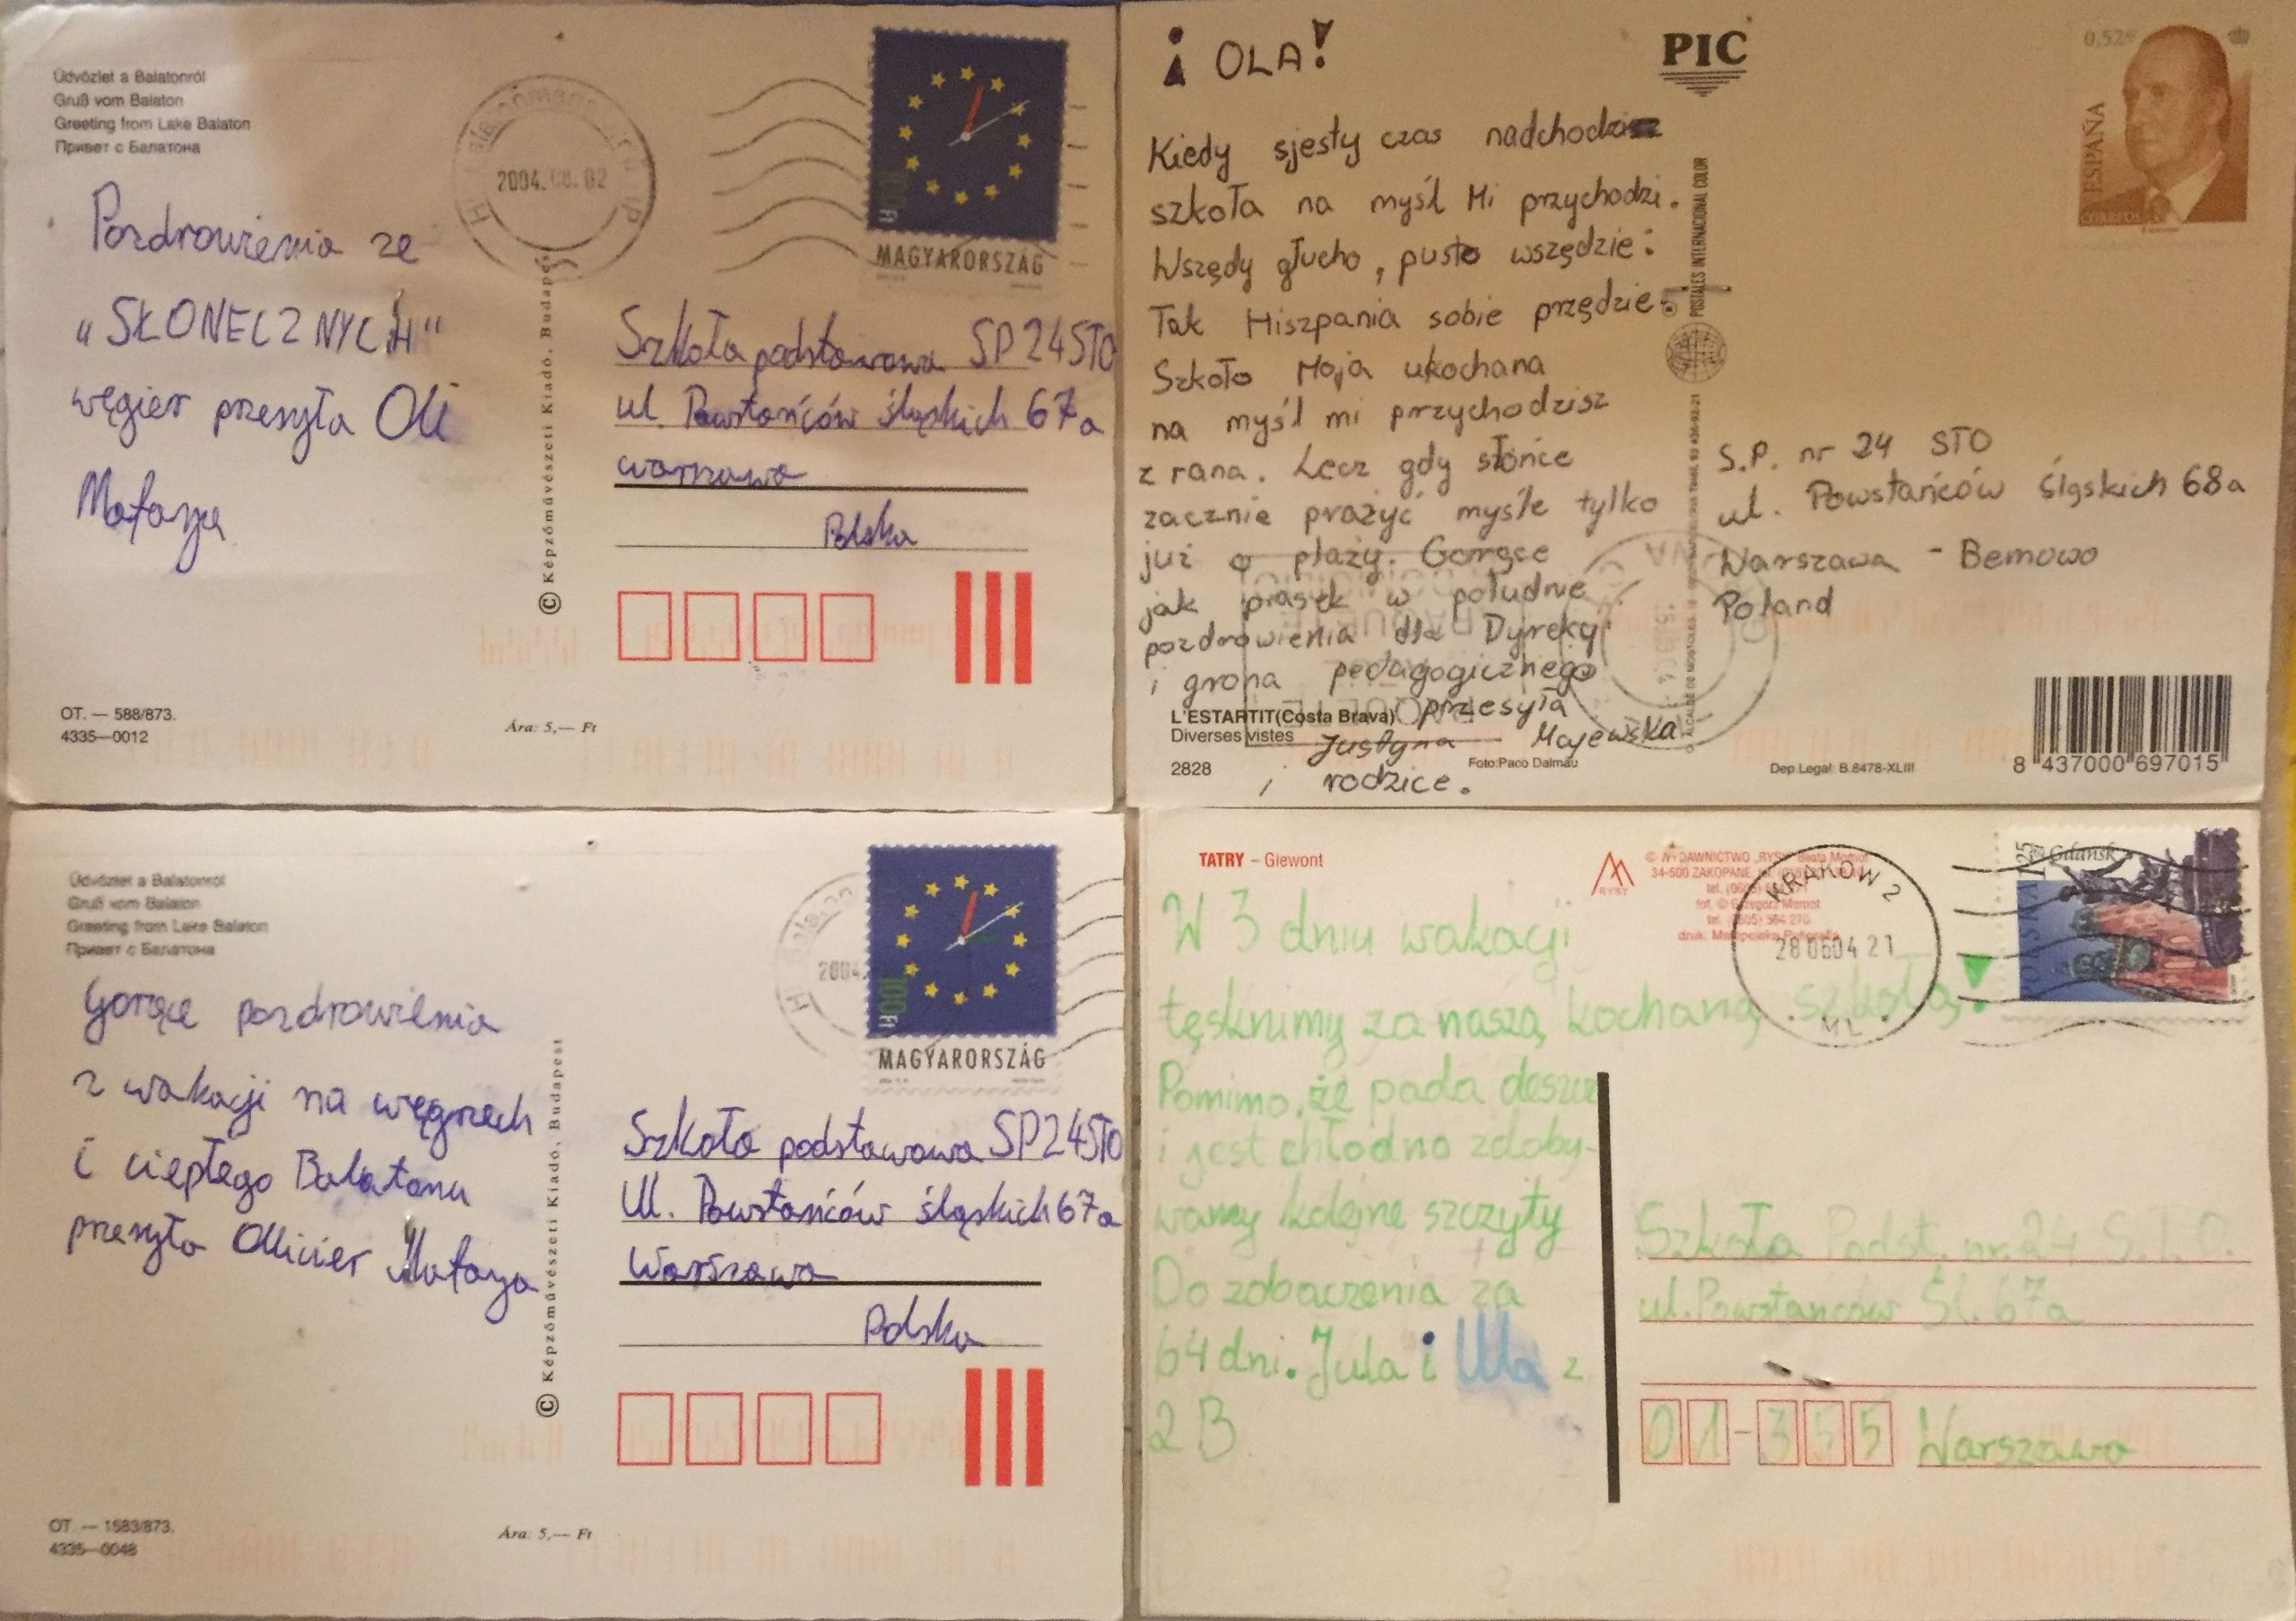 Üdvözlet a Balatonról
Gruß vom Balaton
Greeting from Lake Balaton
Привет с Балатона
2004. 02
100 Ft
MAGYARORSZÁG
Pozdrowienia ze
„SŁONECZNYCH"
węgier przesyła Oli
Matoga
© Képzőművészeti Kiadó, Budapest
Szkoła podstawowa SP24STO
ul. Powstańców śląskich 67a
warszawa
Polska
OT. — 588/873.
4335—0012
Ára: 5,— Ft
¡ OLA!
PIC
0,52€
ESPAÑA
CORREOS
Kiedy sjesty czas nadchodzi
szkoła na myśl Mi przychodzi.
Wszędy głucho, pusto wszędzie:
Tak Hiszpania sobie przędzie.
Szkoło Moja ukochana
na myśl mi przychodzisz
z rana. Lecz gdy słońce
zacznie prażyć myśle tylko
już o plaży. Gorące
jak piasek w południe
pozdrowienia dla Dyrekcji
i grona pedagogicznego
przesyła
Justyna Majewska
i rodzice.
POSTALES INTERNACIONAL COLOR
S.P. nr 24 STO
ul. Powstańców śląskich 68a
Warszawa - Bemowo
Poland
L'ESTARTIT(Costa Brava)
Diverses vistes
2828
Foto:Paco Dalmau
Dep.Legal: B.8478-XLIII
8 437000 697015
Üdvözlet a Balatonról
Gruß vom Balaton
Greeting from Lake Balaton
Привет с Балатона
2004.
100 Ft
MAGYARORSZÁG
Gorące pozdrowienia
z wakacji na węgrzech
i ciepłego Balatonu
przesyła Olivier Matoga
© Képzőművészeti Kiadó, Budapest
Szkoła podstawowa SP24STO
Ul. Powstańców śląskich 67a
Warszawa
Polska
OT. — 1583/873.
4335—0048
Ára: 5,— Ft
TATRY – Giewont
RYSY
© WYDAWNICTWO „RYSY" Beata Momot
34-500 ZAKOPANE
fot. © Grzegorz Momot
KRAKÓW 2
28 06 04 21
ML
Gdańsk
POLSKA
W 3 dniu wakacji
tęsknimy za naszą kochaną szkołą!
Pomimo, że pada deszcz
i jest chłodno zdoby-
wamy kolejne szczyty
Do zobaczenia za
64 dni. Jula i Ula z
2B
Szkoła Podst. nr.24 S.T.O.
ul.Powstańców Śl. 67a
01-355 Warszawa